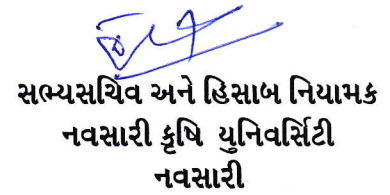 સભ્યસચિવ અને હિસાબ નિયામક
નવસારી કૃષિ યુનિવર્સિટી
નવસારી